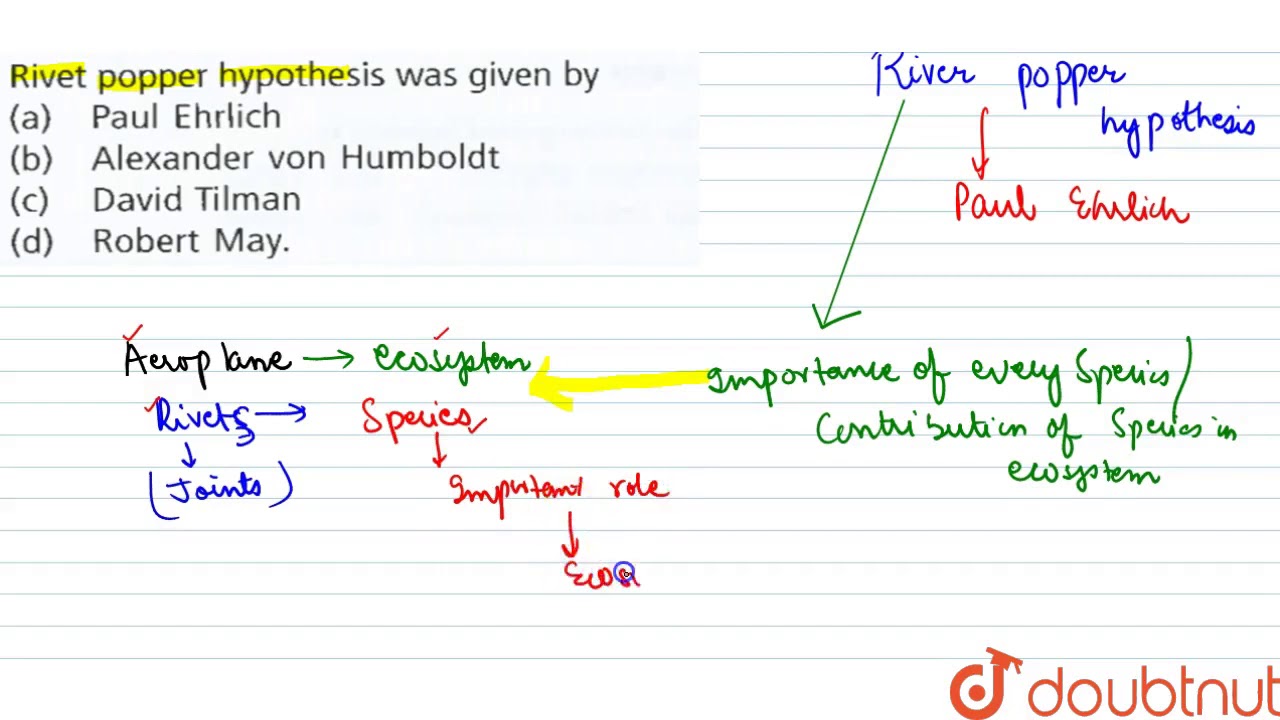 Rivet popper hypothesis was given by
(a) Paul Ehrlich
(b) Alexander von Humboldt
(c) David Tilman
(d) Robert May.
River popper
hypothesis
Paul Ehrlich
Aeroplane → ecosystem
Rivets → Species
(Joints)
Important role
Ecos
Importance of every Species
Contribution of Species in
ecosystem
doubtnut